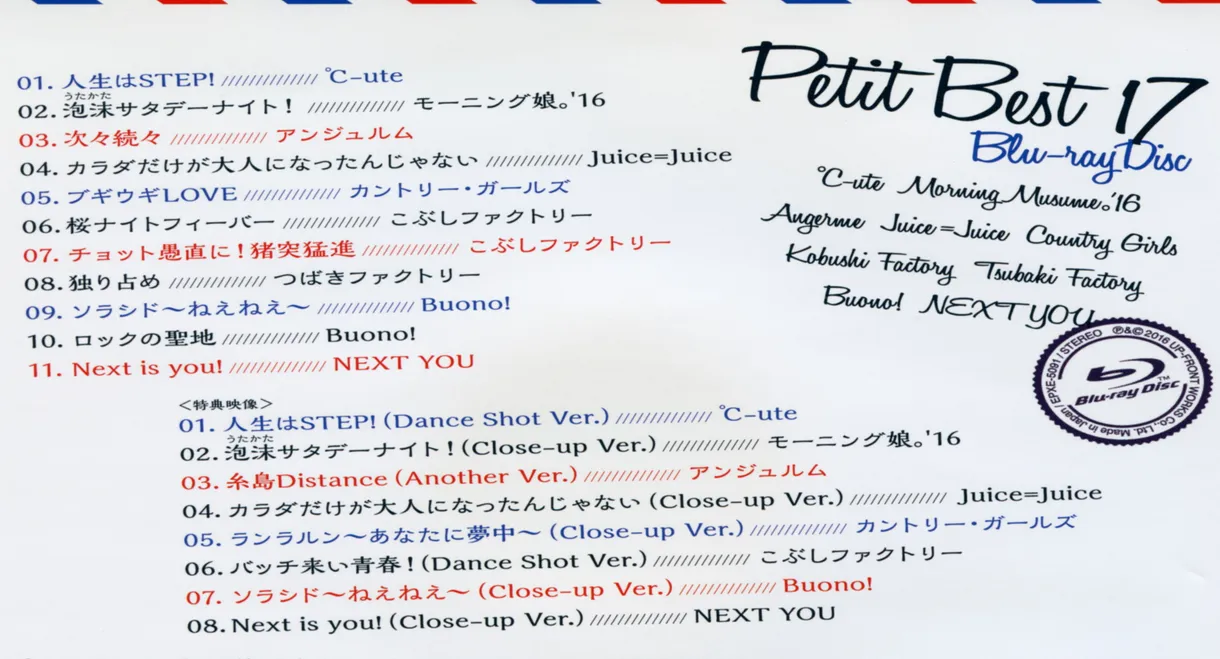 01. 人生はSTEP! ////////////// ℃-ute
うたかた
02. 泡沫サタデーナイト! ////////////// モーニング娘。'16
03. 次々続々 ////////////// アンジュルム
04. カラダだけが大人になったんじゃない ////////////// Juice=Juice
05. ブギウギLOVE ////////////// カントリー・ガールズ
06. 桜ナイトフィーバー ////////////// こぶしファクトリー
07. チョット愚直に!猪突猛進 ////////////// こぶしファクトリー
08. 独り占め ////////////// つばきファクトリー
09. ソラシド〜ねえねえ〜 ////////////// Buono!
10. ロックの聖地 ////////////// Buono!
11. Next is you! ////////////// NEXT YOU
<特典映像>
01. 人生はSTEP! (Dance Shot Ver.) ////////////// ℃-ute
うたかた
02. 泡沫サタデーナイト! (Close-up Ver.) ////////////// モーニング娘。'16
03. 糸島Distance (Another Ver.) ////////////// アンジュルム
04. カラダだけが大人になったんじゃない (Close-up Ver.) ////////////// Juice=Juice
05. ランラルン〜あなたに夢中〜 (Close-up Ver.) ////////////// カントリー・ガールズ
06. バッチ来い青春! (Dance Shot Ver.) ////////////// こぶしファクトリー
07. ソラシド〜ねえねえ〜 (Close-up Ver.) ////////////// Buono!
08. Next is you! (Close-up Ver.) ////////////// NEXT YOU
Petit Best 17
Blu-ray Disc
℃-ute Morning Musume。'16
Angerme Juice=Juice Country Girls
Kobushi Factory Tsubaki Factory
Buono! NEXT YOU
EPXE-5091 / STEREO ℗&© 2016 UP-FRONT WORKS Co., Ltd. Made in Japan /
Blu-ray Disc™